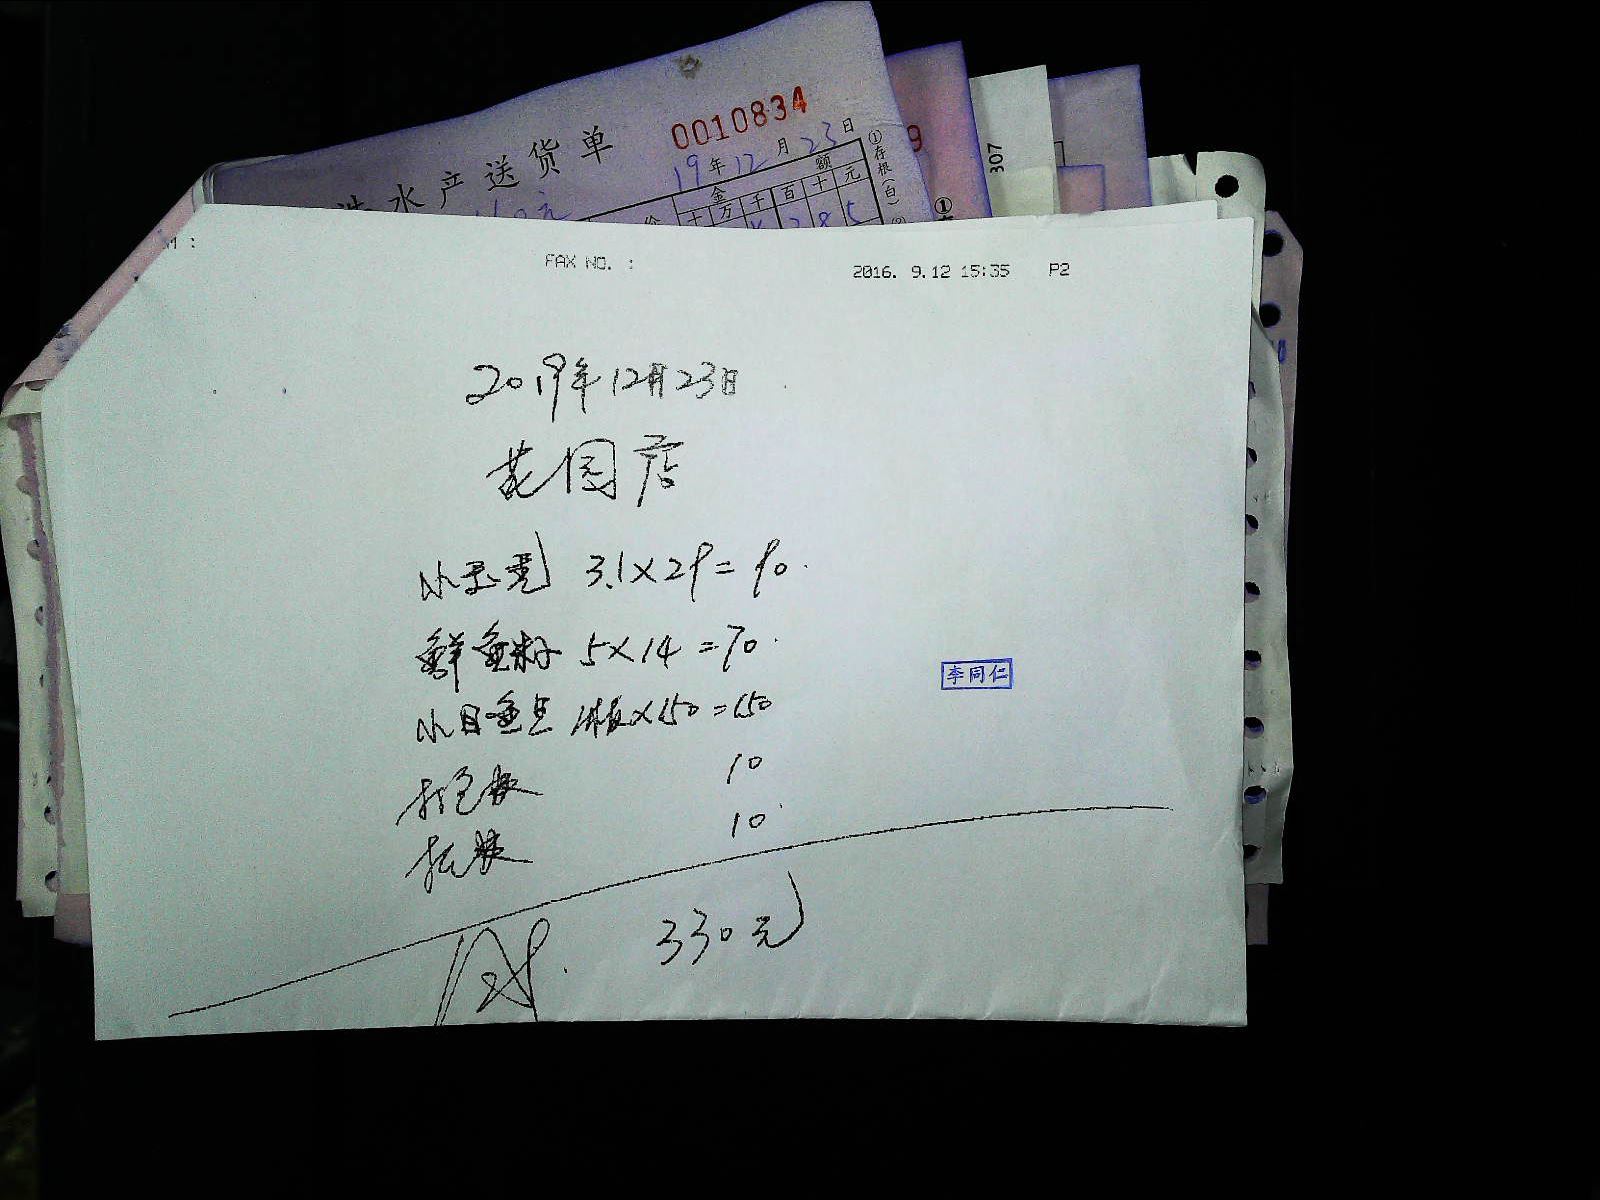 0010834
水产送货单
19年12月23日
①存根(白)
金额
十万千百十元
307
FAX NO. :
2016. 9.12 15:35 P2
2019年12月23日
花园店
3.1×29=90.
鲜鱼籽 5×14=70.
×150=150
10
10
李同仁
330元